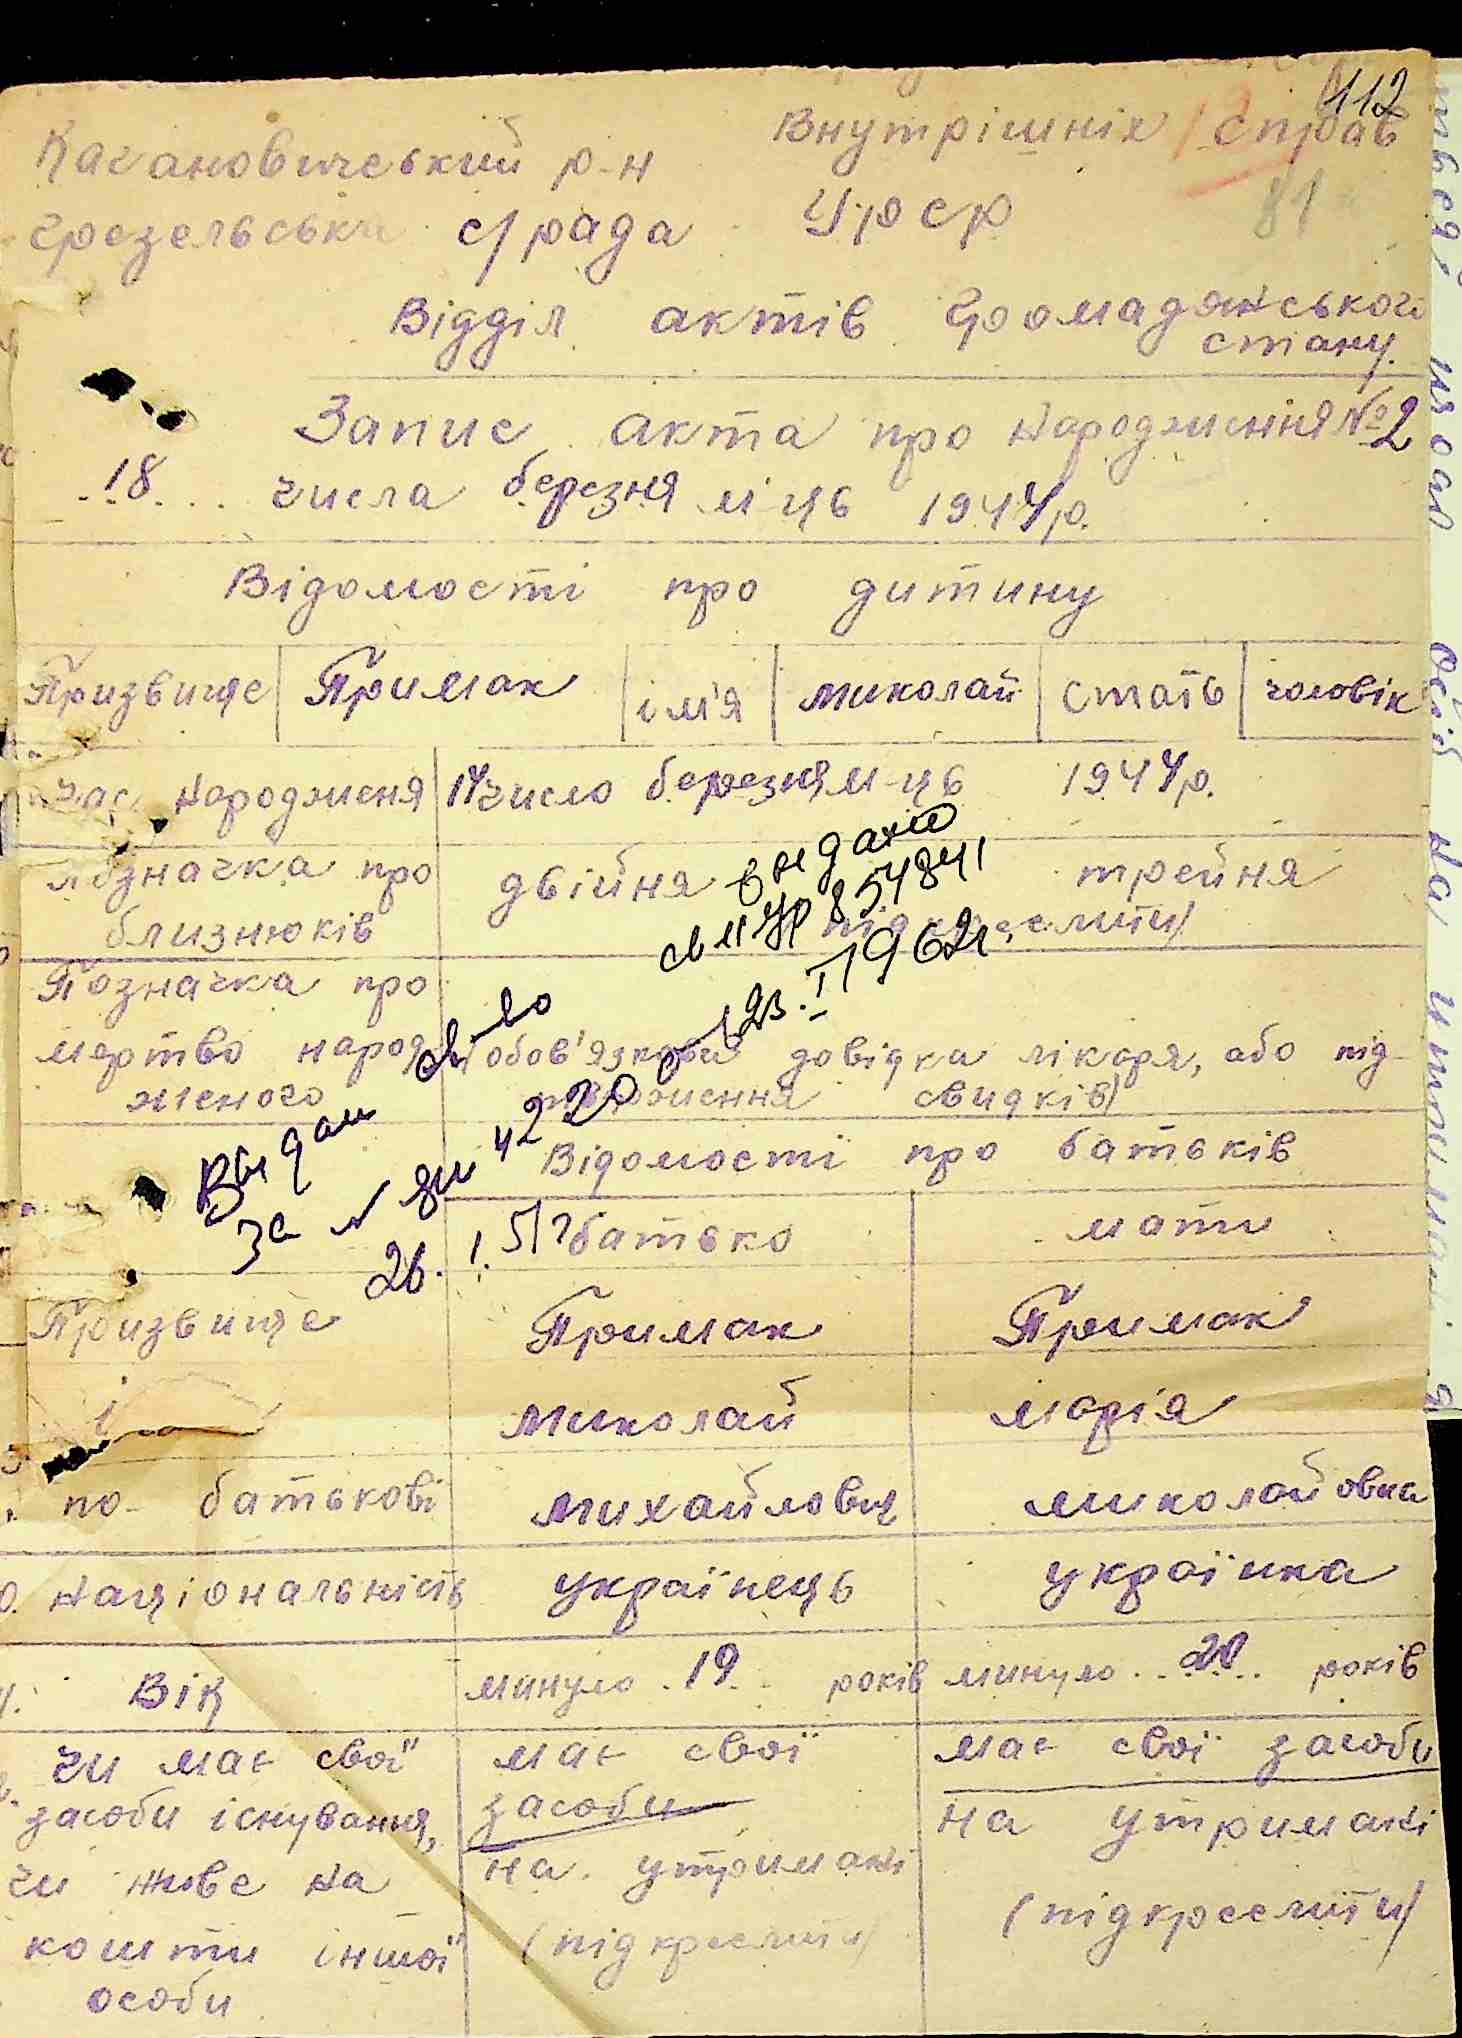 412
Внутрішніх справ
81
Кагановичеський р-н
Грезельська с/рада УРСР
Відділ актів Громадянського
стану.
Запис акта про народження № 2
18 числа березня м-ць 1944р.
Відомості про дитину
Призвище Примак ім'я Миколай стать чоловік
час народженя 14 число березня м-ць 1944р.
позначка про двійня трейня
близнюків підкреслити)
выдано
св II УР 854841
23.I 1962г.
Позначка про
мертво народ (обов'язковий довідка лікаря, або під
женого свидків)
Выдан св-во
за № 422
26.1.51г
Відомості про батьків
батько мати
Призвище Примак Примак
і Миколай Марія
по-батькові Михайлович Миколайовна
Національність українець українка
Вік минуло 19 років минуло 20 років
чи має свої має свої має свої засоби
засоби існування, засоби на утримані
чи живе на на утримані
кошти іншої (підкреслити) (підкреслити)
особи